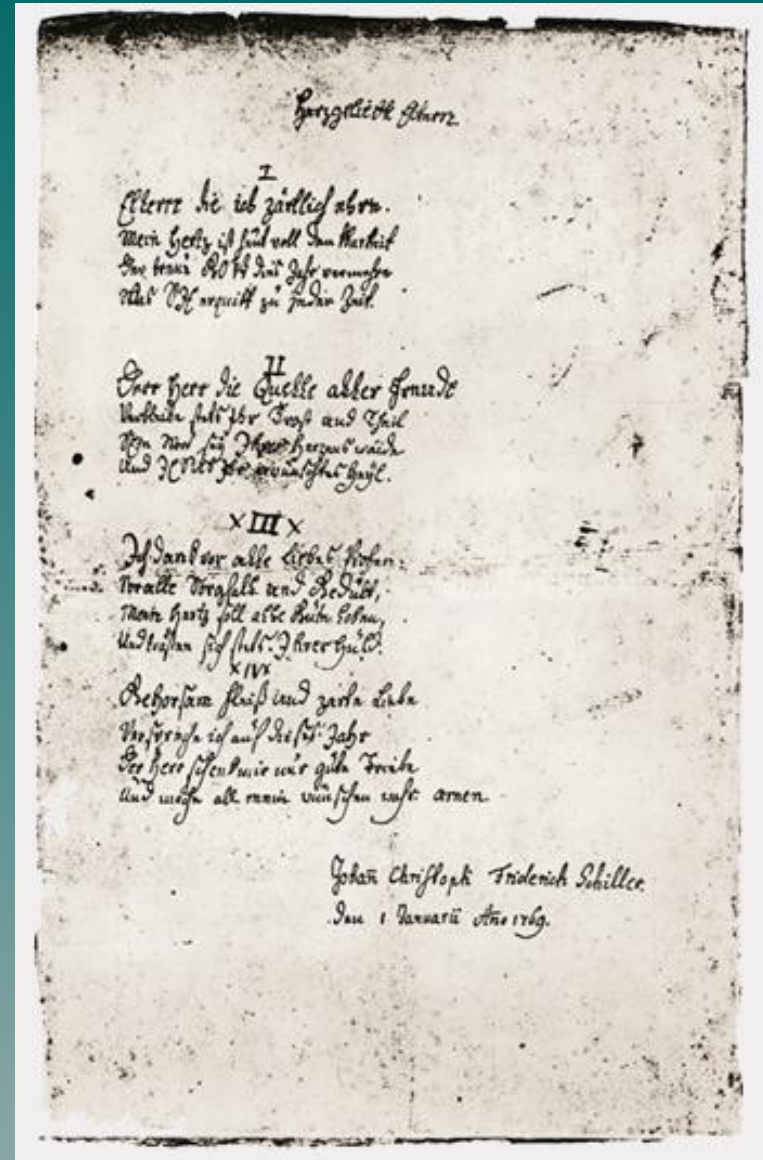 Herzgeliebte Eltern
I
Eltern die ich zärtlich ehre.
Mein Hertz ist heut voll Danckbarkeit
Der treue GOtt dies Jahr vermehre
Was SIE erquickt zu jeder Zeit.
II
Der Herr die Quelle aller Freude
Verbleibe stets Ihr Trost und Theil
Sein Wort sey Ihres Hertzens weide
Und JESUS Ihr erwünschtes Heyl.
XIIIX
Ich danck vor alle Liebes Proben,
Vor alle Sorgfalt und Gedult,
Mein Hertz soll alle Güte loben,
Und trösten sich stets Ihrer Huld.
XIVX
Gehorsam Fleiß und zarte Liebe
Verspreche ich auf dieses Jahr
Der Herr schenck mir nur gute Triebe
Und mache all mein wünschen wahr. amen.
Johañ Christoph Friderich Schiller.
Den 1 Januarii Año 1769.